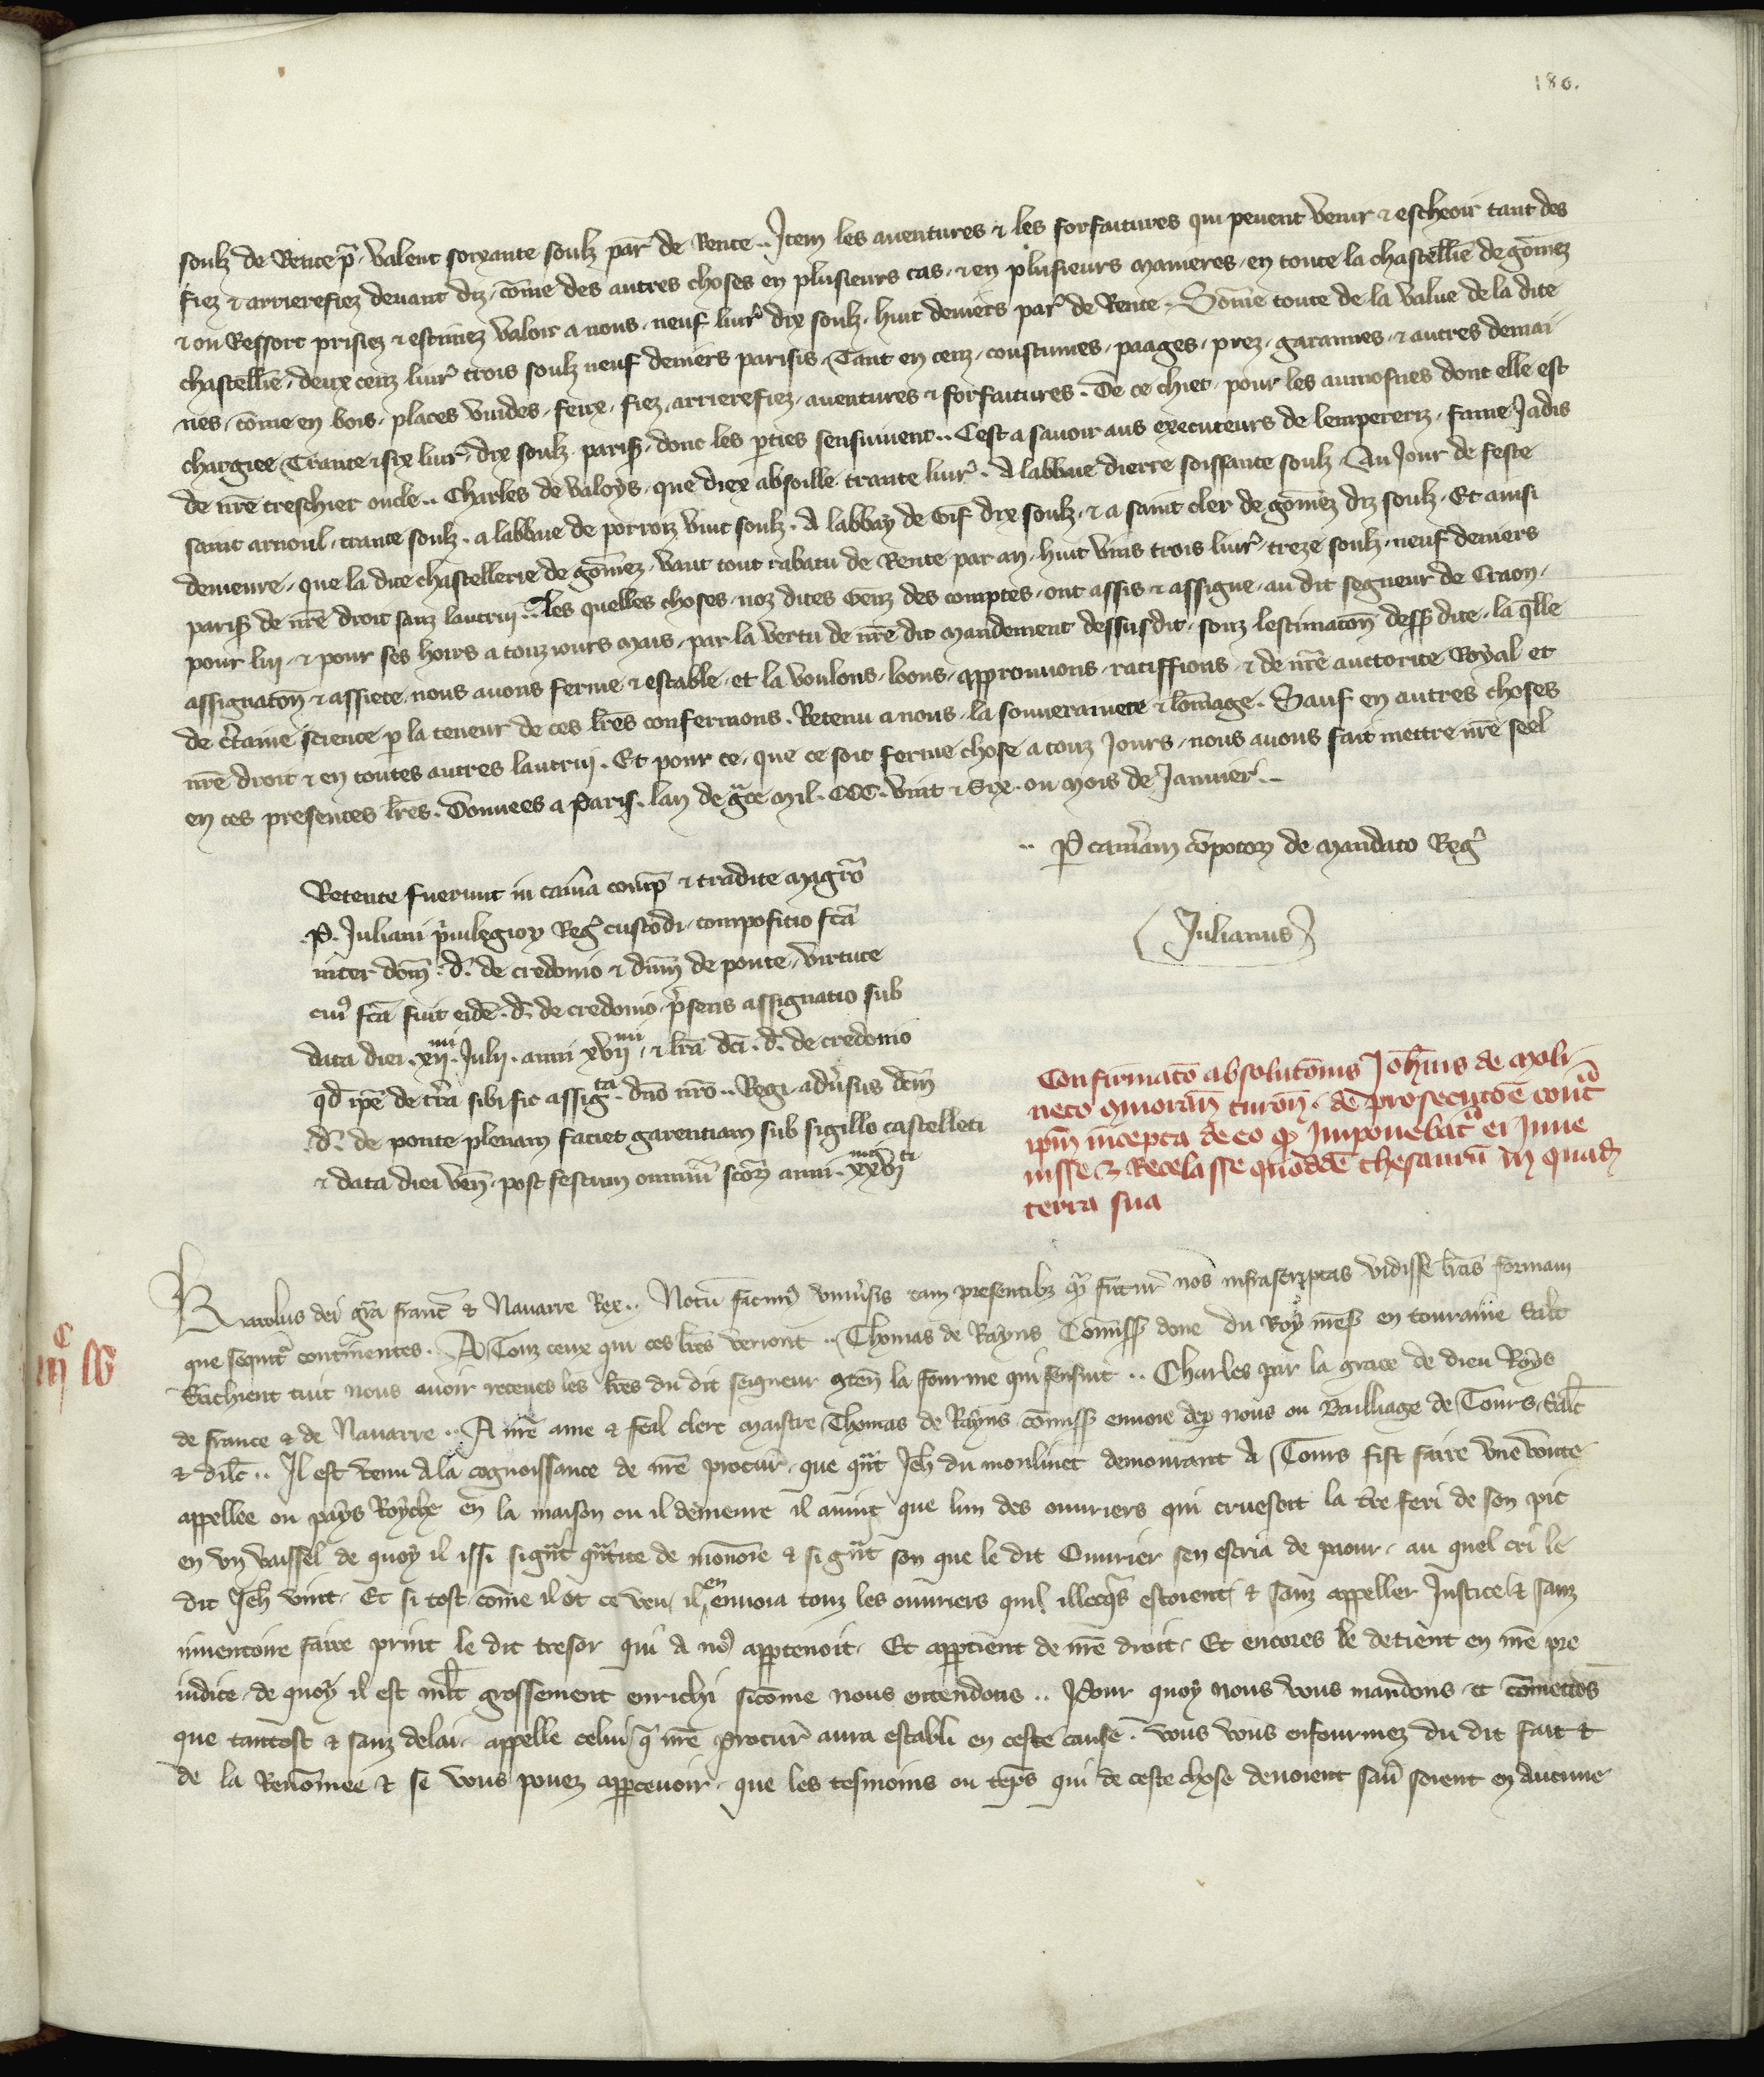 180.
soulz de Rente p̃. valent soixante soulz par̃ de Rente.. Item les auentures & les forfaitures qui peuent venir & escheoir tant des
fiez & arrierefiez deuant diz, cõme des autres choses en plusieurs cas, & en plusieurs manieres, en toute la chastelliẽ de gõmez
& ou Ressort prisiez & estimez valoir a nous, neuf liur̃ dix soulz, huit deniers par̃ de Rente. Sõme toute de la value de la dite
chastelliẽ, deux cenz liur̃ trois soulz neuf deniers parisis, Tant en cenz, coustumes, paages, prez, garannes, & autres demai
nes, cõme en bois, places vuides, feux, fiez, arrierefiez, auentures & forfaitures. De ce chiet, pour les aumosnes dont elle est
chargiee Trante & six liur̃, dix soulz, paris̃, dont les pties sensuiuent.. Cest a sauoir aus executeurs de lempereriz, fame Jadis
de nr̃e treschier oncle.. Charles de valoys, que diex absoille trante liur̃. A labbaie dierre soissante soulz, Au Jour de feste
saint arnoul, trante soulz. a labbaie de porroiz vint soulz. A labbay de Gif dix soulz, & a saint cler de gõmez diz soulz. Et ainsi
demeure, que la dite chastellerie de gõmez, vaut tout rabatu de Rente par an, huit vins trois liur̃, treze soulz, neuf deniers
paris̃ de nr̃e droit sanz lautrui.. Les quelles choses, noz dites Genz des comptes, ont assis & assigne, au dit segneur de Craon,
pour lui, & pour ses hoirs a touz iours mais, par la vertu de nr̃e dit mandement dessusdit, souz lestimacoñ dess̃ dite, la q̃lle
assignacoñ & assiete, nous auons ferme & estable, et la voulons, loons, approuuons, ratiffions, & de nr̃e auctorite Royal et
de c̃taine science p la teneur de ces lr̃es confermons. Retenu a nous, la souuerainete & lõmage. Sauf en autres choses
nr̃e droit & en toutes autres lautrui. Et pour ce, que ce soit ferme chose a touz Jours, nous auons fait mettre nr̃e seel
en ces presentes lr̃es. Donnees a Paris. lan de gr̃ce mil. CCC. vint & Six. ou mois de Januier..
.. P cam̃am cõpotoꝝ de mandato Reg̃
Julianus
Retente fuerunt in cam̃a comp̃ & tradite magr̃o
.P. Juliani p̃uilegioꝝ Reg̃ custodi, compositio fc̃a
inter dom̃. d̃. de credonio & dñm de ponte, virtute
cuiꝰ fc̃a fuit eidẽ. d̃. de credonio, p̃sens assignatio sub
data diei. xii. Julii. anni xvii, & lr̃a dc̃i. d̃. de credonio
qđ ip̃e de tr̃a sibi sic assigta. dño nr̃o.. Regi adũsus dc̃m
.d̃. de ponte plenam faciet garentiam sub sigillo castelleti
& data diei veñ. post festum omniũ sc̃oꝝ anni. xxvi
Confirmacõ absolucõnis Joh̃nis de moli
neto moranũ turoñ. de prosecutõe cont̃
ip̃m incepta de eo qꝫ Imponebat̃ ei Inue
nisse & Recelasse quoddẽ thesaurũ in quad̃
terra sua
Karolus dei gr̃a franc̃ & Nauarre Rex.. Notũ facimꝰ vniũsis tam presentibꝫ qꝫ futur̃ nos infrascriptas vidisse lr̃as formam
que sequit̃ continentes. A Touz ceux qui ces lr̃es verront.. Thomas de Rayns Comiss̃ done du Roy mes̃ en touraine Salt̃
Sachient tuit nous auoir receues les lr̃es du dit seigneur 9teñ la fourme qui sensuit.. Charles par la grace de dieu Roys
de france & de Nauarre.. A nr̃e ame & feal clerc maistre Thomas de Rayns cõmiss̃ enuoie dep nous ou Bailliage de Tours, Salt̃
& dilc̃.. Il est venu a la cognoissance de nr̃e procur̃, que qñt Jeh̃ du moulinet demourant A Tours fist faire vne voute
appellee ou pays Royche en la maison ou il demeure il auint que lun des ouuriers qui cruesoit la tr̃e feri de son pic
en vn vaissel de quoy il issi si gñt qñtite de monoie & si gñt son que le dit Ouurier sen escria de paour. au quel cri le
dit Jeh̃ vint. Et si tost cõme il ot ce veu, il en enuoia touz les ouuriers qui illecq̃s estoient, & sanz appeller Justice & sanz
inuentoire faire print le dit tresor qui a noꝰ appartenoit. Et appartient de nr̃e droit. Et encores le detient en nr̃e pre
iudice, de quoy il est mlt̃ grossement enrichi sicõme nous entendons.. Pour quoy nous vous mandons et cõmettõs
que tantost & sanz delai, appelle celui q̃ nr̃e procur̃ aura establi en ceste cause. vous vous enfourmez du dit fait &
de la Renõmee & se vous pouez appceuoir, que les tesmoins ou tẽps qui de ceste chose deuoient sau̾ soient en aucune